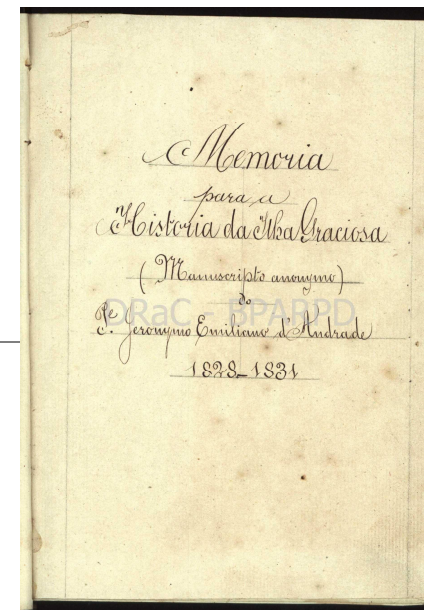 Memoria
para a
Historia da Ilha Graciosa
(Manuscripto anonymo)
do
DRaC - BPARPD
Pe. Jeronymo Emiliano d'Andrade
1828-1831